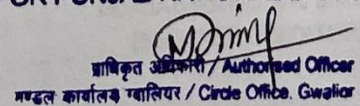 प्राधिकृत अधिकारी / Authorised Officer
मण्डल कार्यालय ग्वालियर / Circle Office, Gwalior